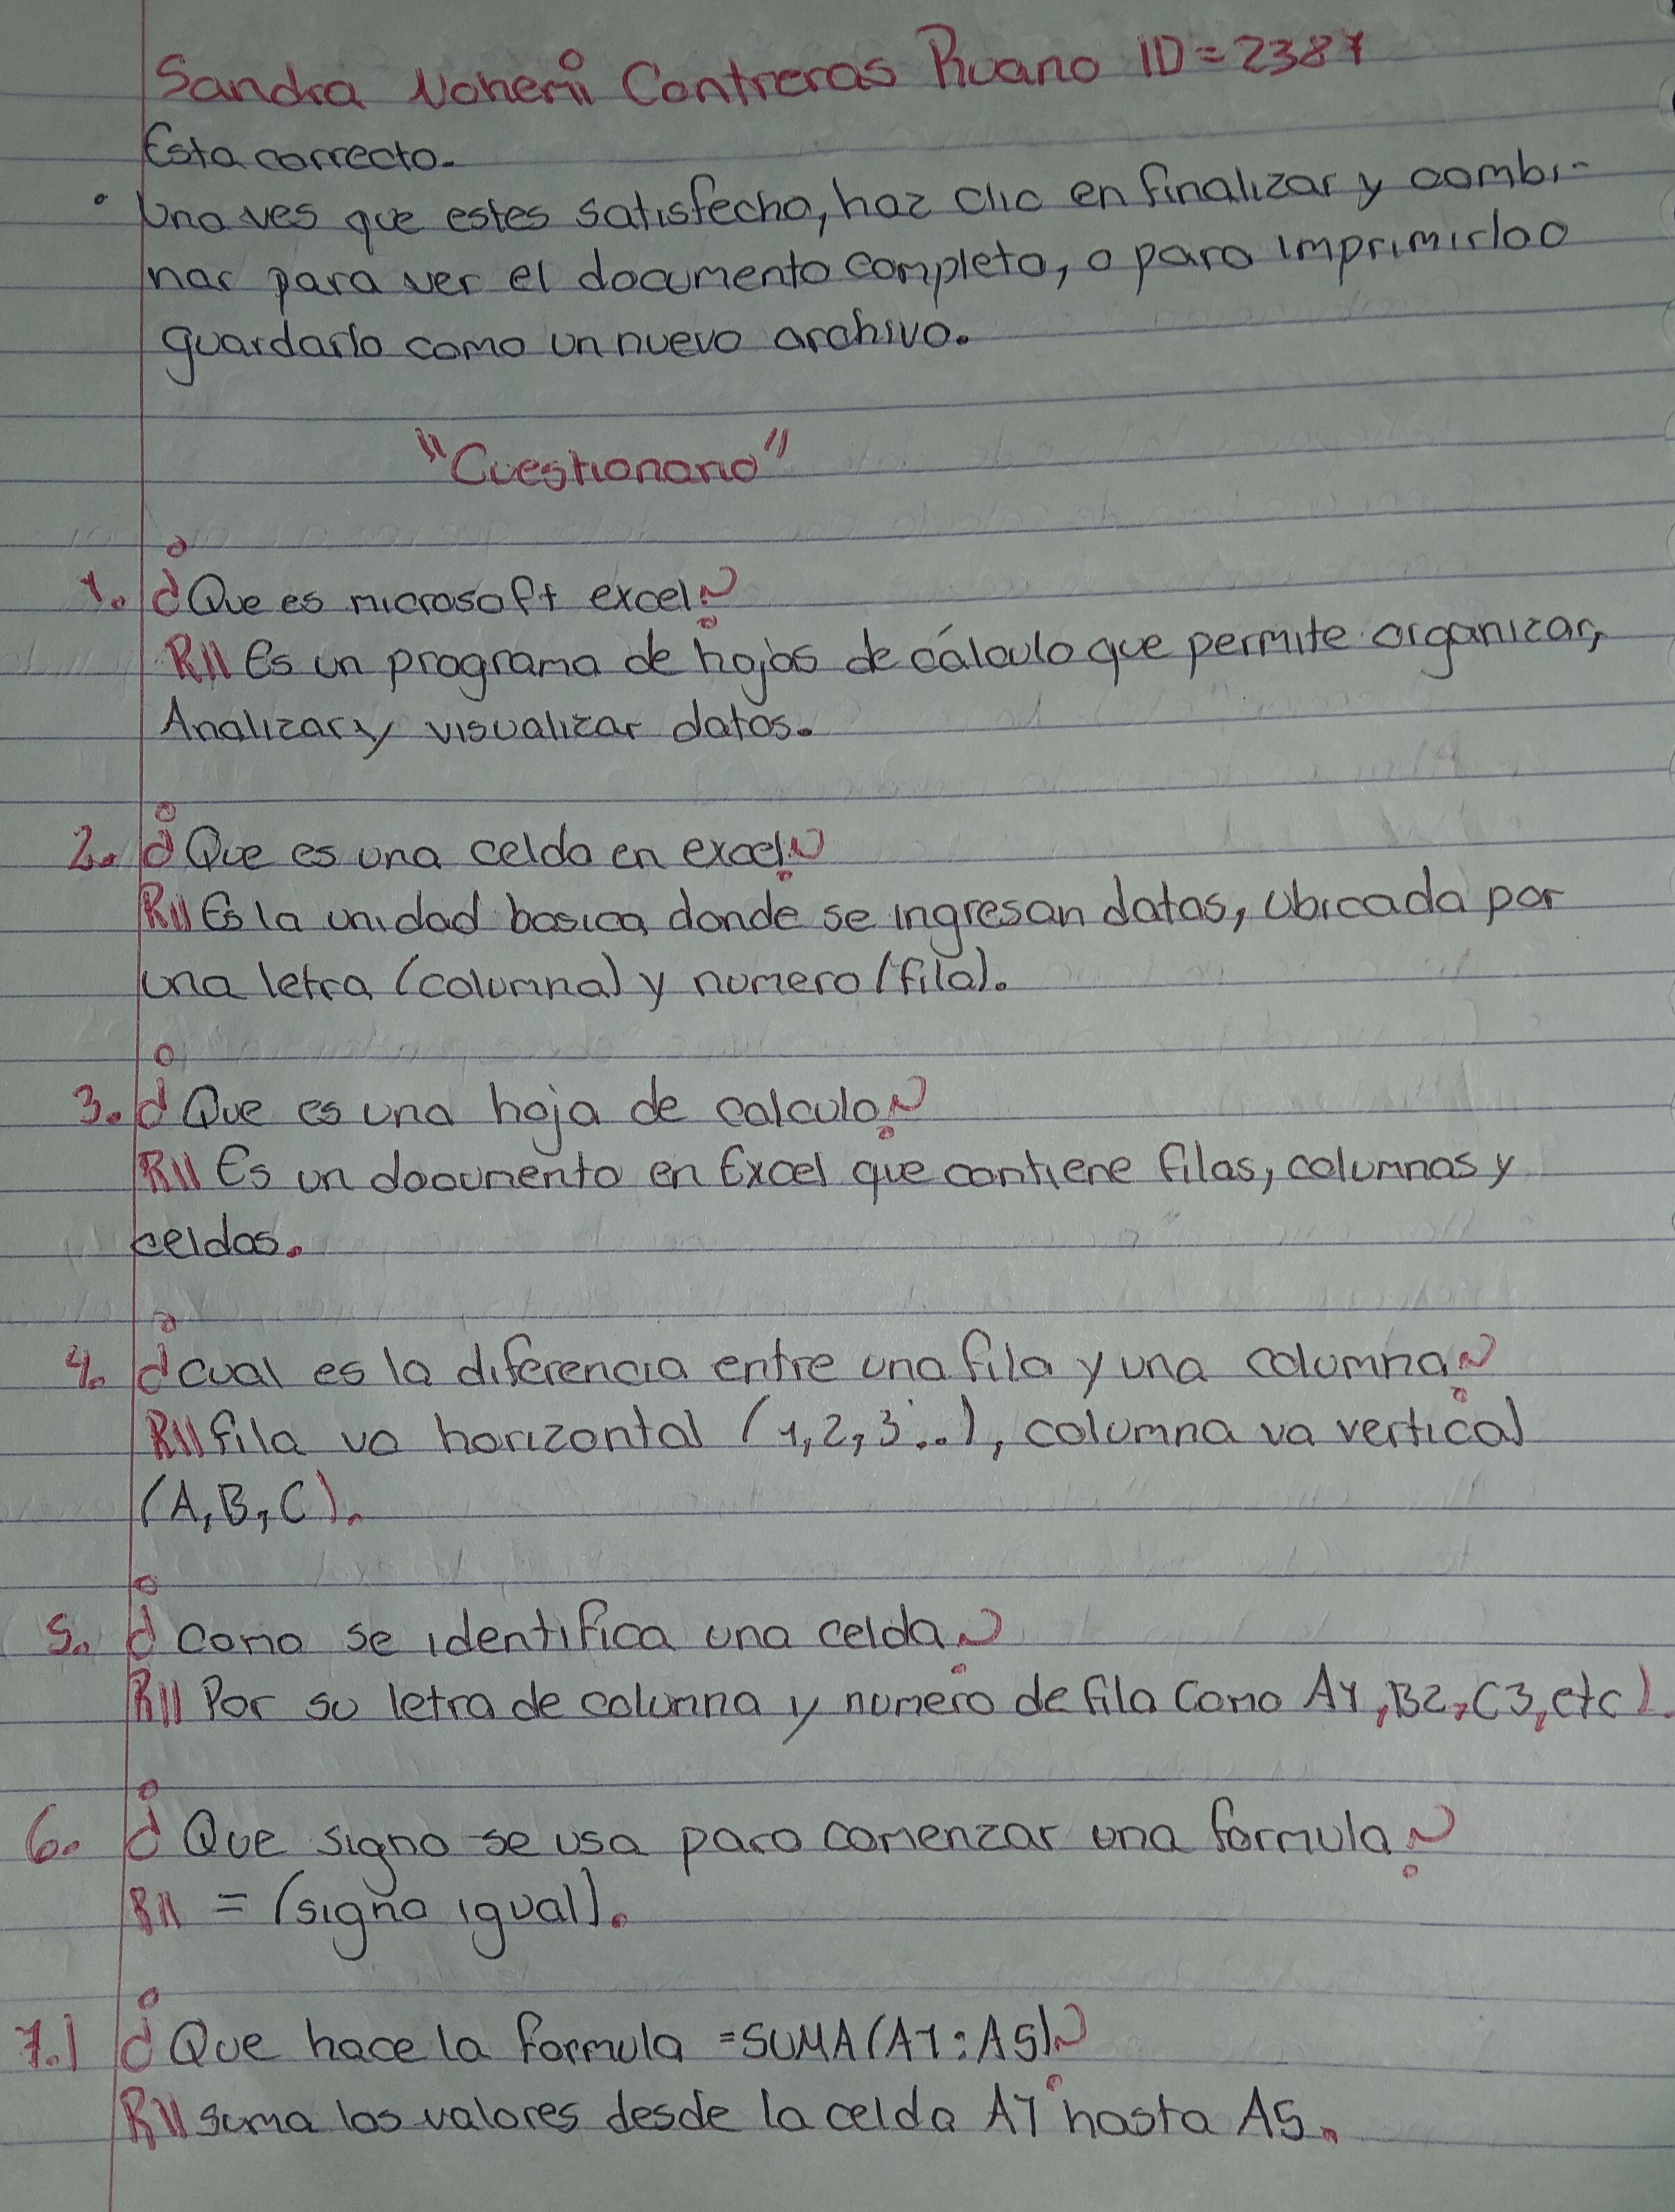 Sandra Nohemi Contreras Ruano ID=2381
Esta correcto.
• Una ves que estes satisfecho, haz clic en finalizar y combi-
nar para ver el documento completo, o para imprimirlo o
guardarlo como un nuevo archivo.
"Cuestionario"
1. ¿Que es microsoft excel?
R// Es un programa de hojas de cálculo que permite organizar,
Analizar y visualizar datos.
2. ¿Que es una celda en excel?
R// Es la unidad basica donde se ingresan datos, ubicada por
una letra (columna) y numero (fila).
3. ¿Que es una hoja de calculo?
R// Es un documento en Excel que contiene filas, columnas y
celdas.
4. ¿cual es la diferencia entre una fila y una columna?
R// fila va horizontal (1,2,3...), columna va vertical
(A,B,C).
5. ¿como se identifica una celda?
R// Por su letra de columna y numero de fila Como A1,B2,C3,etc).
6. ¿Que signo se usa para comenzar una formula?
R// = (signo igual).
7. ¿Que hace la formula =SUMA(A1:A5)?
R// suma los valores desde la celda A1 hasta A5.